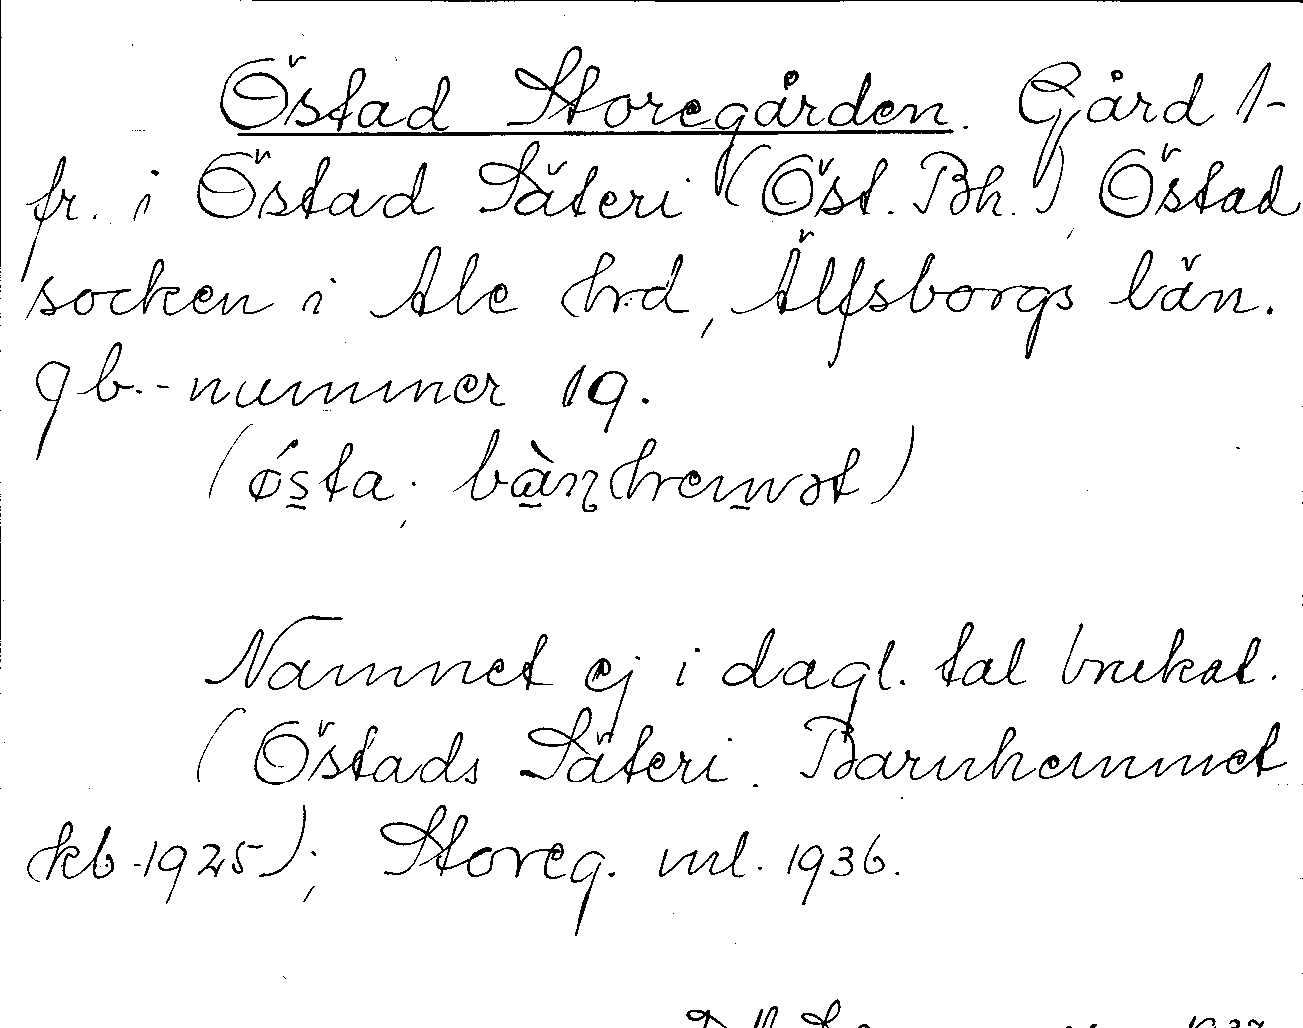 Östad Storegården. Gård 1-
fr. i Östad Säteri (Öst. Bh.), Östad
socken i Ale hrd, Älfsborgs län.
gb.-nummer 19.
(ǿsta, bàɳhemət)
Namnet ej i dagl. tal brukat.
(Östads Säteri. Barnhemmet
kb -1925); Storeg. ml. 1936.